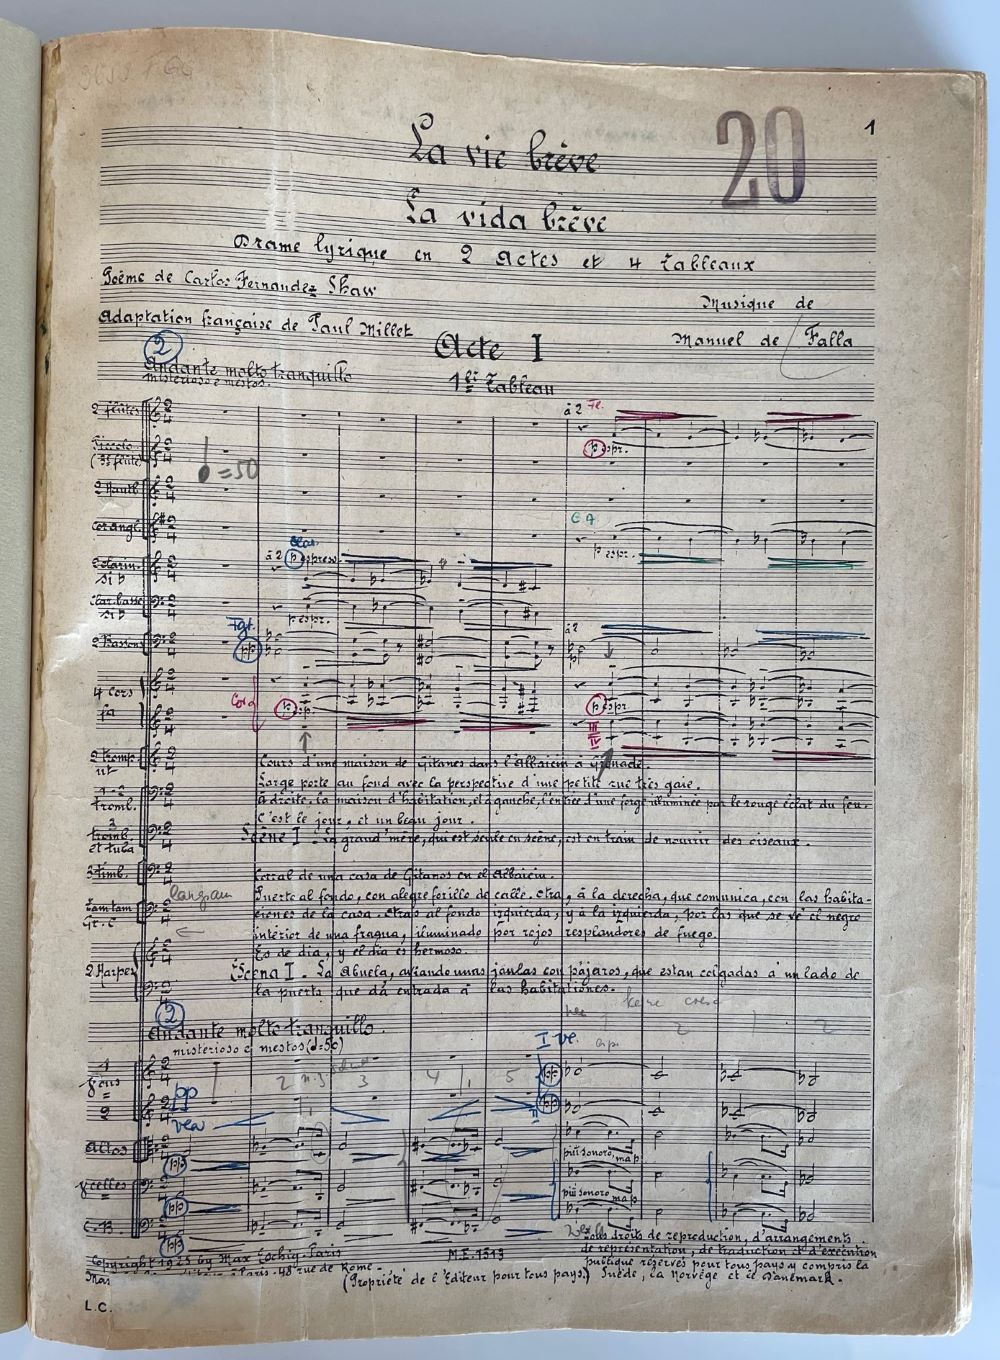 20
1
La vie brève
La vida brève
Drame lyrique en 2 actes et 4 Tableaux
Poème de Carlos Fernandez Shaw
Musique de
Adaptation française de Paul Millet
Manuel de Falla
Acte I
2
Andante molto tranquillo
misterioso e mestos.
1er Tableau
2 flûtes
à 2 Fl.
p espr.
Piccolo
(3e flûte)
♩=50
2 Hautb
Cor angl.
C A
p espr.
2 clarin
si b
Clar.
à 2 p espress.
Clar. basse
si b
p espr.
2 Bassons
Fgt.
pp
à 2
4 Cors
fa
Cor
p esp.
p espr
III
IV
2 tromp
ut
Cours d'une maison de Gitanes dans l'Albaicin à Grenade.
Large porte au fond avec la perspective d'une petite rue très gaie.
1-2
tromb.
A droite, la maison d'habitation, et à gauche, l'entrée d'une forge illuminée par le rouge éclat du feu.
C'est le jour, et un beau jour.
3
tromb.
et tuba
Scène I. La grand'mère, qui est seule en scène, est en train de nourrir des oiseaux.
3 timb.
Corral de una casa de Gitanos en el Albaicin.
langsam
Puerta al fondo, con alegre forillo de calle. Otra, à la derecha, que comunica, con las habita-
Tam tam
Gr. C
ciones de la casa. Otras al fondo izquierda, y à la izquierda, por las que se ve el negro
interior de una fragua, iluminado por rojos resplandores de fuego.
Es de dia, y el dia es hermoso.
2 Harpes
Escena I. La Abuela, aviando unas jaulas con pájaros, que estan colgadas à un lado de
la puerta que dà entrada à las habitationes.
keine cresc
2
Andante molto tranquillo.
misterioso e mestos (♩=50)
2 1 2
I ve.
1
Vons
2
2 3 4 5
pp
pp
pp
Altos
più sonoro, ma p
pp
Vcelles
più sonoro, ma p
pp
C.B.
pp
Copyright 1925 by Max Eschig. Paris
M.E. 1313
Tous droits de reproduction, d'arrangements
de représentation, de traduction et d'exécution
publique réservés pour tous pays y compris la
Paris. 48 rue de Rome.
(Propriété de l'Editeur pour tous pays.) Suède, la Norvège et le Danemark.
L.C.